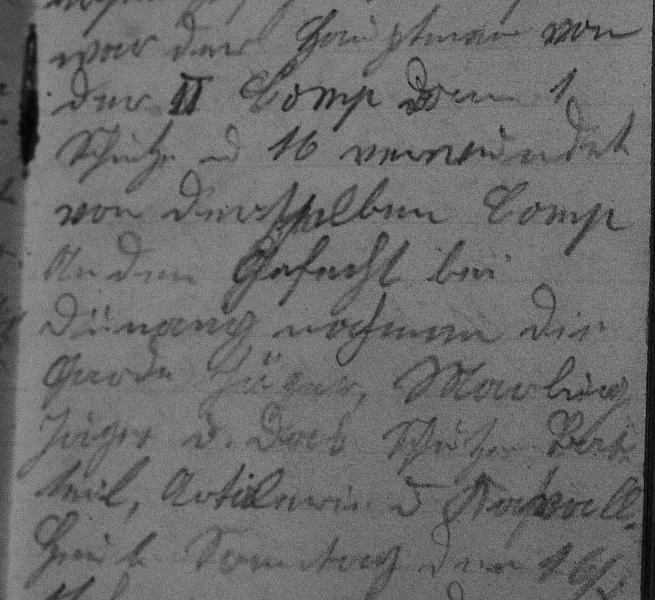 war der Hauptman von
der II Comp dem 1
Schütze u 16 verwundet
von derselben Comp
An dem Gefecht bei
Dünang nahmen die
Garde Jäger, Marburg
Jäger u. das Schützen Bat
teil, Artillerie u Kavall.
Heute Sonntag den 16/